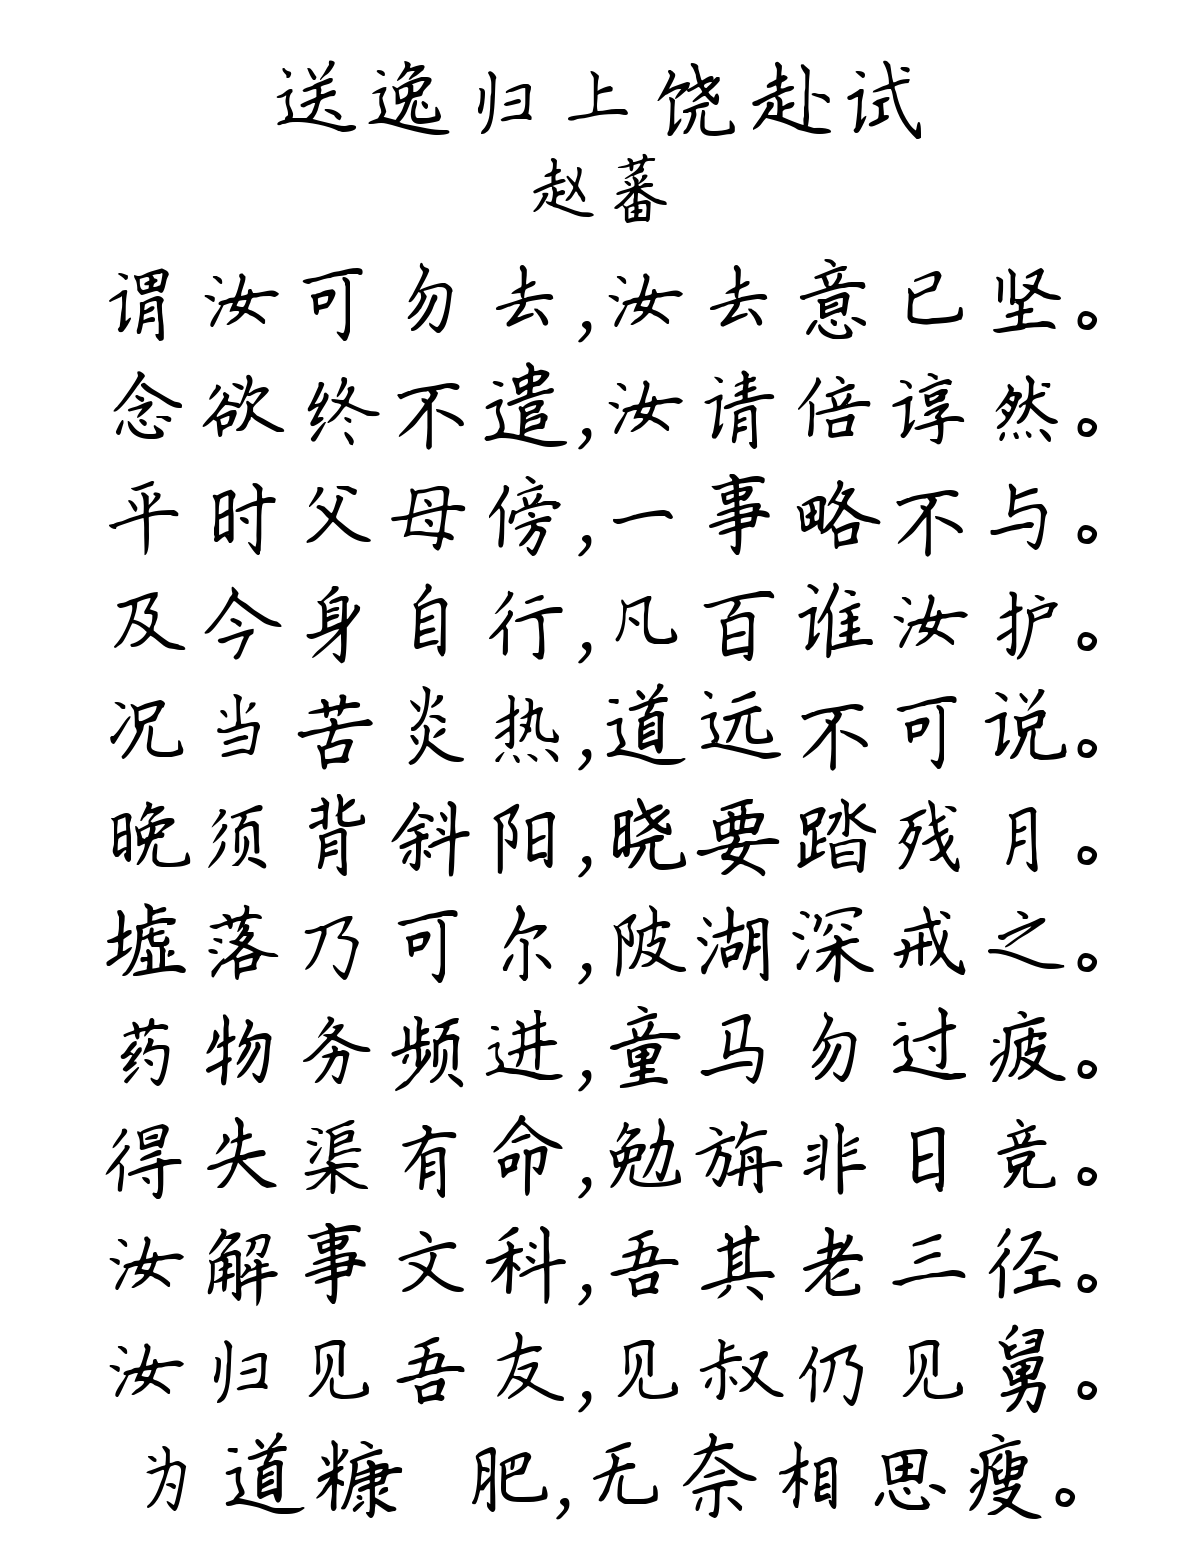 送逸归上饶赴试
赵蕃
谓汝可勿去,汝去意已坚。
念欲终不遣,汝请倍谆然。
平时父母傍,一事略不与。
及今身自行,凡百谁汝护。
况当苦炎热,道远不可说。
晚须背斜阳,晓要踏残月。
墟落乃可尔,陂湖深戒之。
药物务频进,童马勿过疲。
得失渠有命,勉旃非日竞。
汝解事文科,吾其老三径。
汝归见吾友,见叔仍见舅。
为道糠 肥,无奈相思瘦。